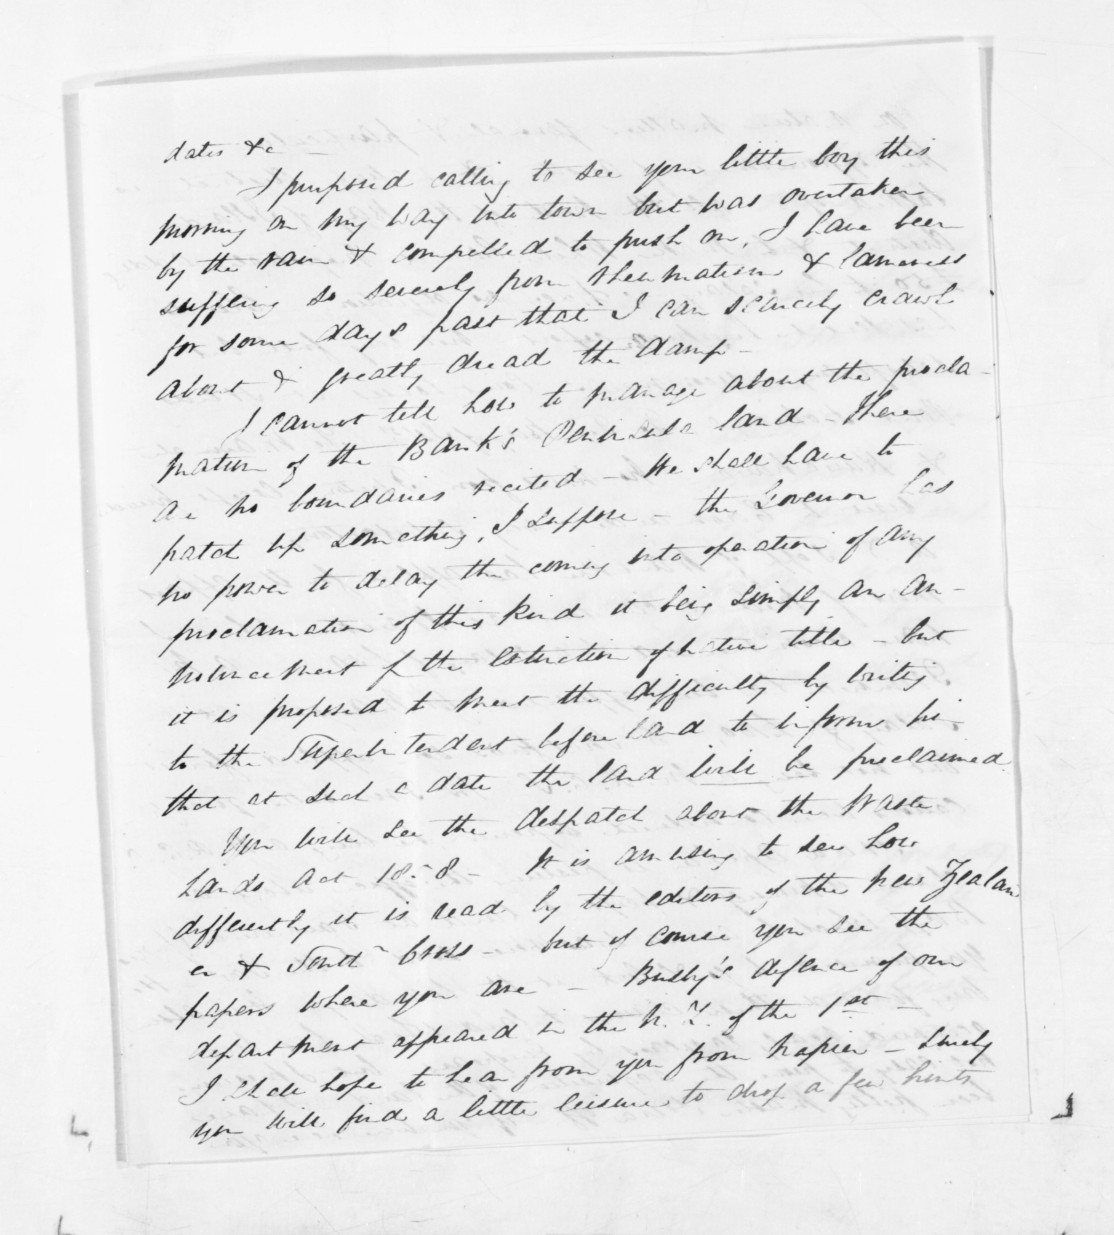 dates &c —
I purposed calling to see your little boy this
morning on my way into town but was overtaken
by the rain & compelled to push on. I have been
suffering so severely from rheumatism & lameness
for some days past that I can scarcely crawl
about & greatly dread the damp —
I cannot tell how to manage about the procla-
mation of the Bank's Peninsula land — There
are no boundaries recited — We shall have to
patch up something, I suppose — the Governor has
no power to delay the coming into operation of any
proclamation of this kind it being simply an an-
nouncement of the extinction of native title — but
it is proposed to meet the difficulty by writing
to the Superintendent beforehand to inform him
that at such a date the land will be proclaimed
You will see the despatch about the Waste
Lands Act 1858 — It is amusing to see how
differently it is read by the editors of the New Zealand
er & South'n Cross — but of course you see the
papers where you are — Busby's defence of our
department appeared in the N. Z. of the 1st —
I shall hope to hear from you from Napier — Surely
you will find a little leisure to drop a few hints